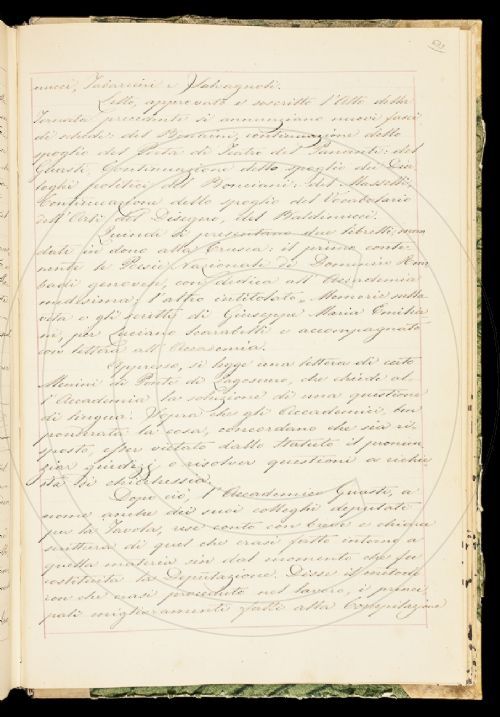 nucci, Tabarrini e Salvagnoli.
Letto, approvato e soscritto l'Atto della
Tornata precedente si annunziano nuovi fasci
di schede: del Bonaini, continuazione dello
spoglio del Porta di Teatro del Panciati: del
Guasti, Continuazione dello spoglio dei Dia-
loghi politici del Ponciani: del Masselli,
Continuazione dello spoglio del Vocabolario
dell'Arti del Disegno, del Baldinucci.
Quindi si presentano due libretti, man-
dati in dono alla Crusca: il primo conte-
nente le Poesie nazionali di Domenico
genovese, con dedica all'Accademia
medesima; l'altro intitolato, Memorie sulla
vita e gli scritti di Giuseppe Maria Emilia-
ni, per Luciano Scarabelli e accompagnato
con lettera all'Accademia.
Appresso, si legge una lettera di certo
Menini di Ponte di Lagoscuro, che chiede al-
l'Accademia la soluzione di una questione
di lingua: Sopra che gli Accademici, ben
ponderata la cosa, concordano che sia ri-
sposto, esser vietato dallo Statuto il pronun-
ziar giudizj o risolver questioni a richie-
sta di chicchessia.
Dopo ciò, l'Accademico Guasti, a
nome anche dei suoi colleghi deputati
per la Tavola, rese conto con breve e chiara
scrittura di quel che erasi fatto intorno a
quella materia sin dal momento che fu
costituita la Deputazione. Disse il metodo
con che erasi proceduto nel lavoro, i princi-
pali miglioramenti fatti alla Compilazione